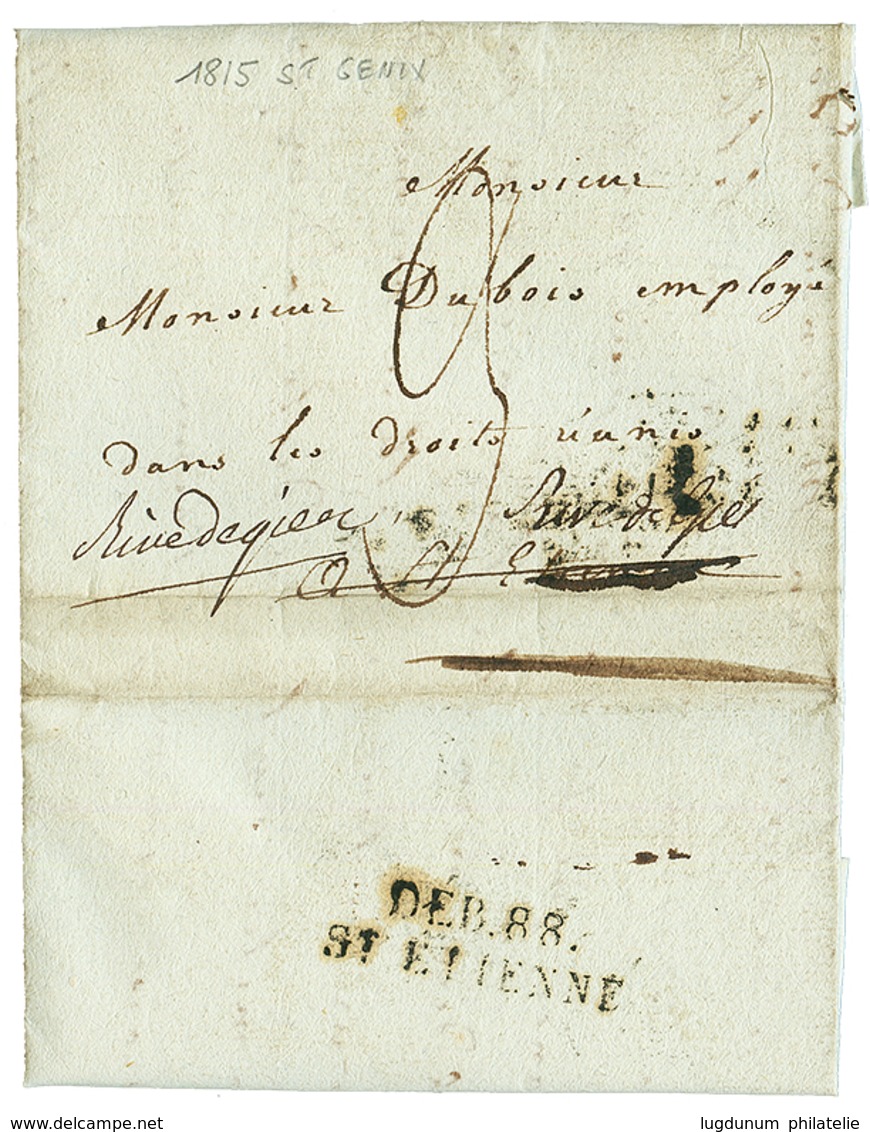 1815 ST GENIX
Monsieur
Monsieur Dubois employé
dans les droits réunis
Rivedegier Rive de Gier
a St Etienne
DÉB. 88.
ST ETIENNE
www.delcampe.net
lugdunum philatelie